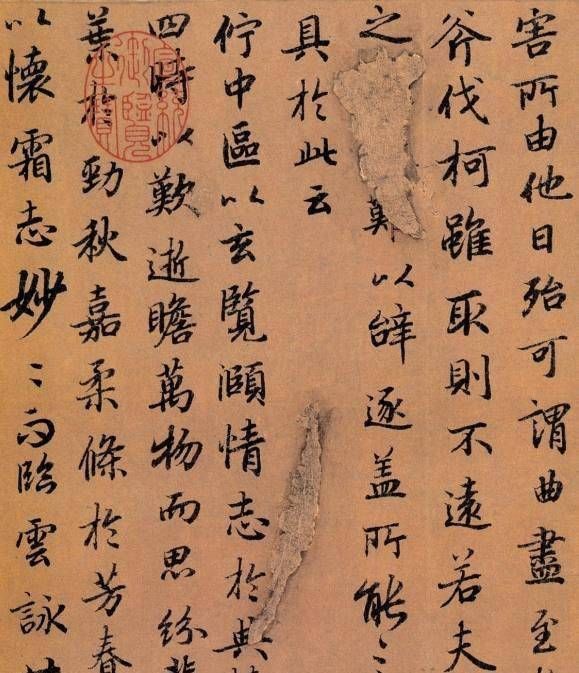 害所由他日殆可謂曲盡至
斧伐柯雖取則不遠若夫
之難以辭逐盖所能〻
具於此云
佇中區以玄覽頤情志於典
四時以歎逝瞻萬物而思紛
葉於勁秋嘉柔條於芳春
以懷霜志妙〻而臨雲詠